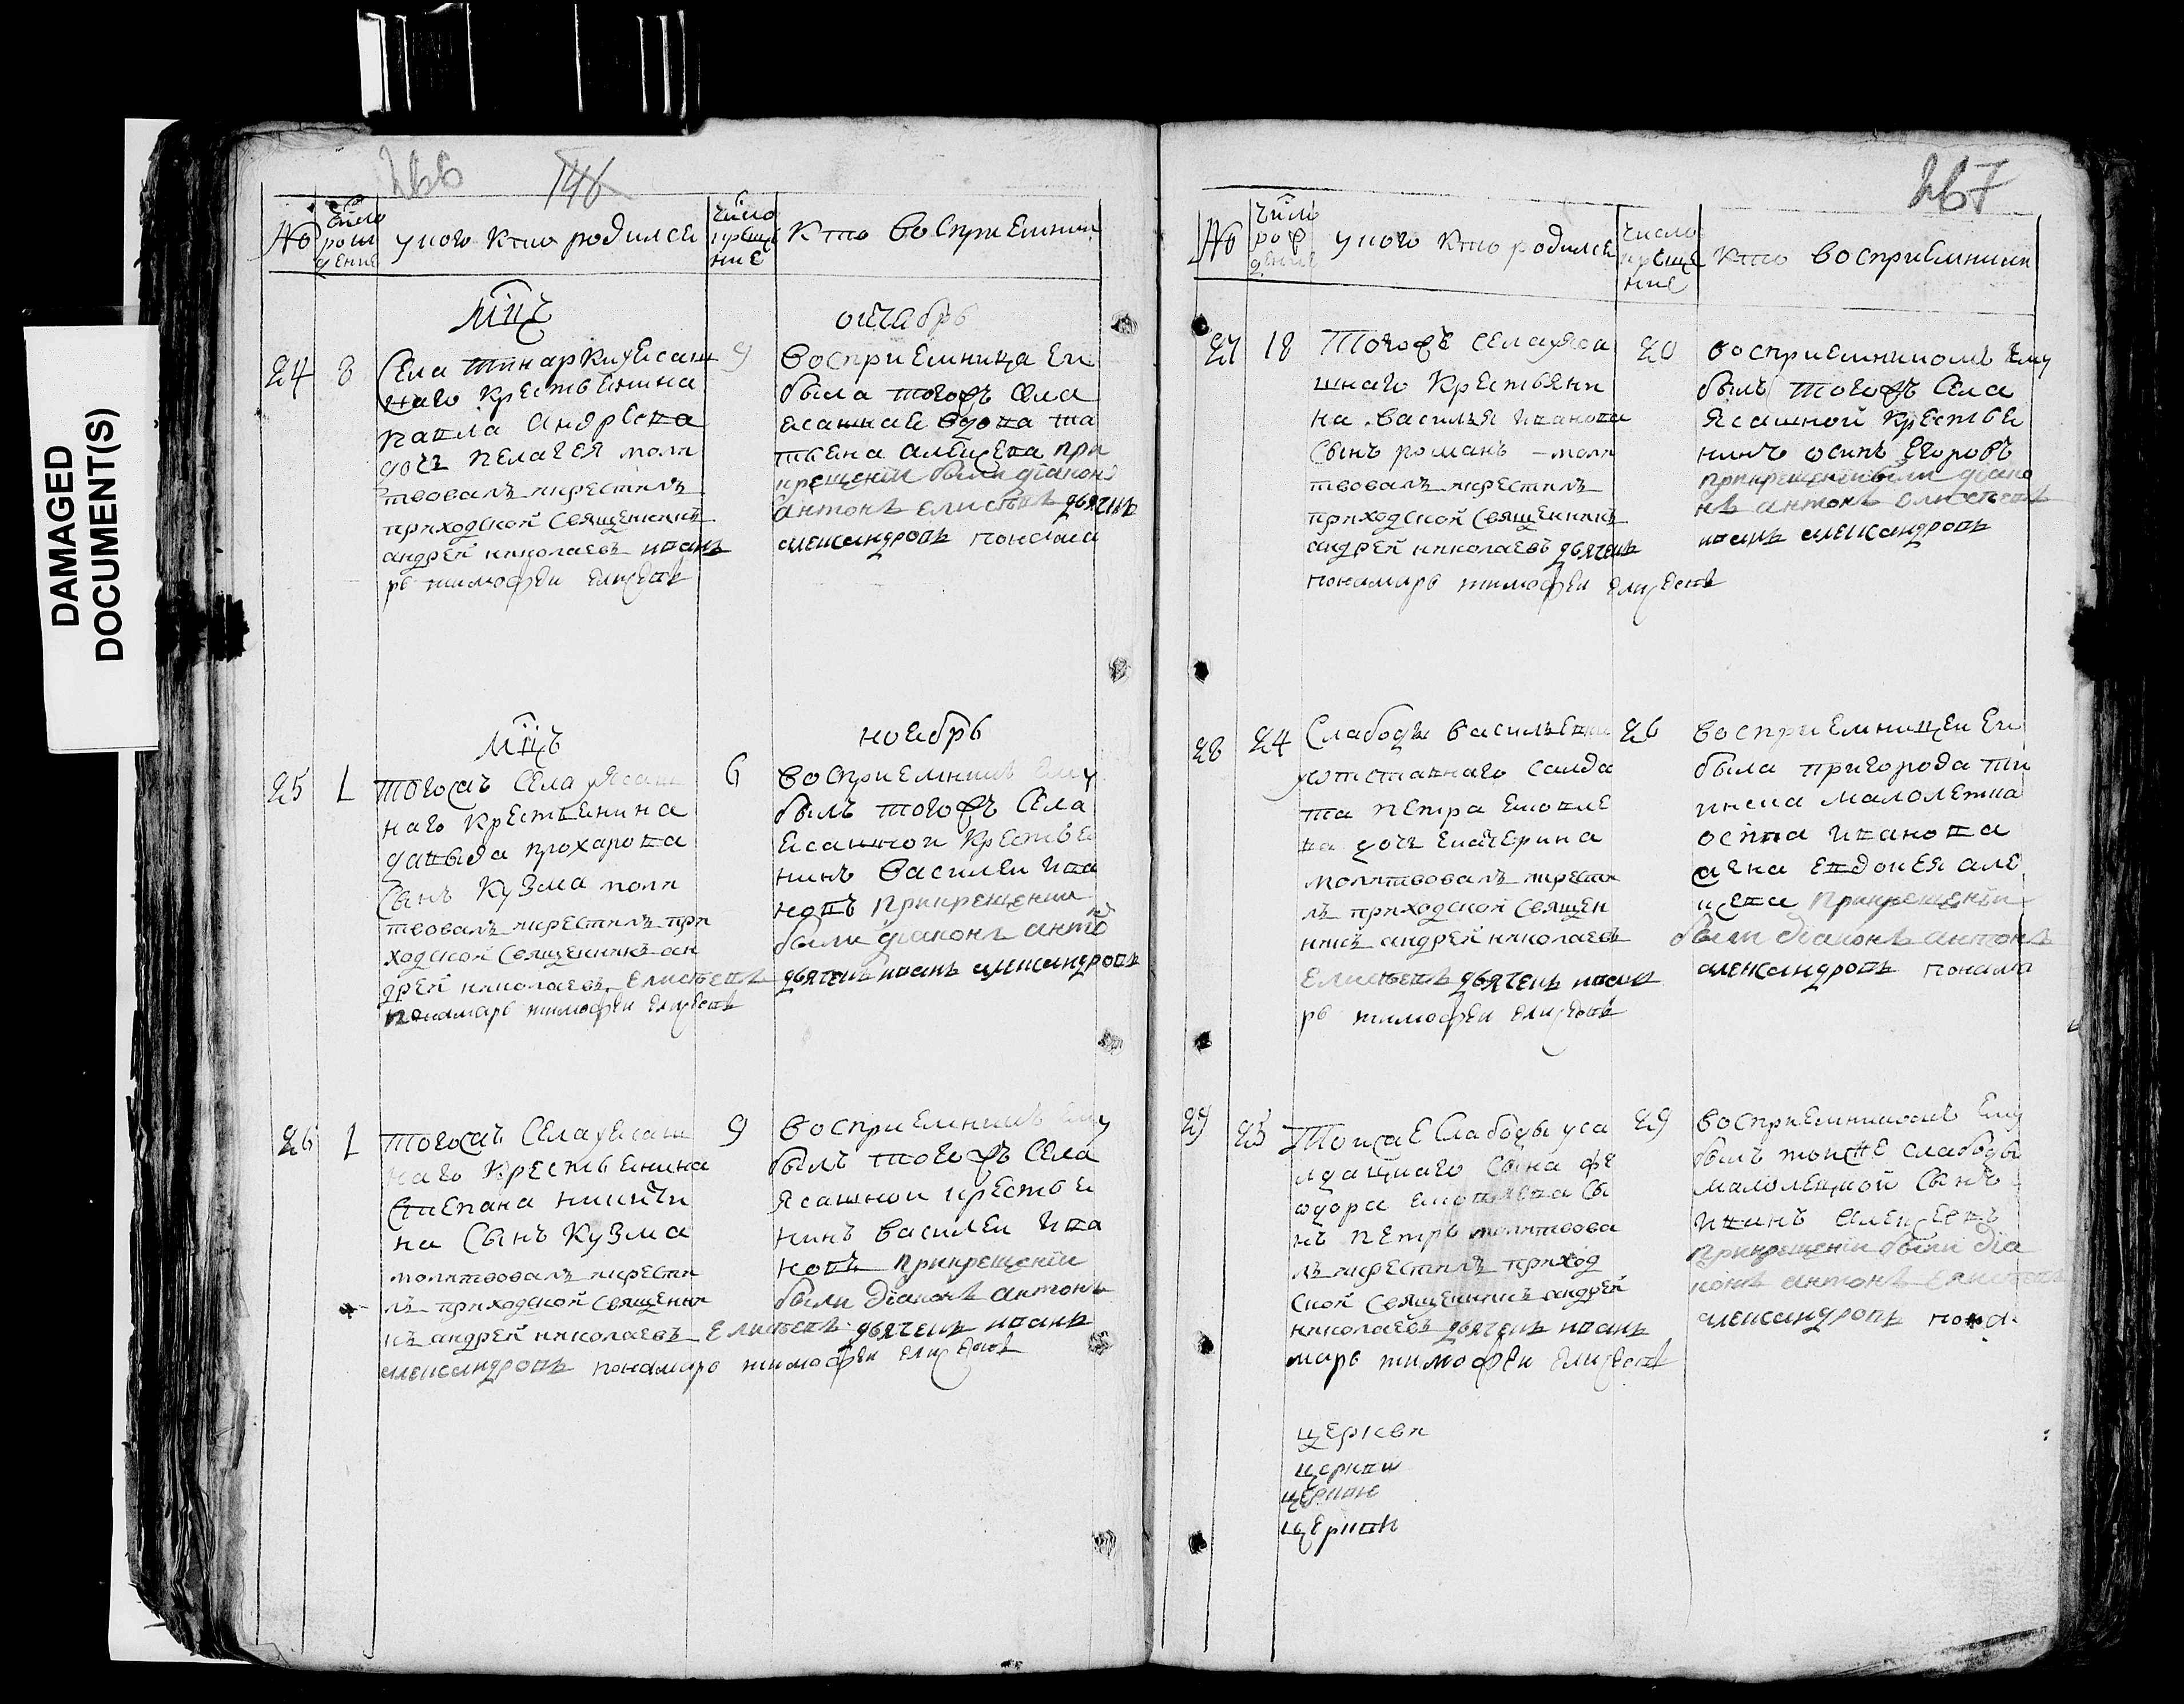 DAMAGED
DOCUMENT(S)
266 146
№ число рож дение у кого кто родился число креще ние кто восприемники
мцъ октабрь
24 8 Села Тинарки уясаш 9
наго крестьенина
павла андрсева
дочь пелагея моли
твовалъ икрестилъ
приходской священникъ
андрей николаевъ иванъ
рь тимофеи елисеевъ
восприемница еи
была тогожъ села
ясашнае вдова та
тьена алексеева при
крещении были діаконъ
антонъ елисеевъ дьячекъ
александровъ понома
мцъ ноябрь
25 1 тогожъ села уясаш 6
наго крестьенина
давыда прохарова
сынъ кузма моли
твовалъ икрестилъ при
ходской священникъ ан
дрей николаевъ елисеевъ
понамарь тимофеи елисеевъ
восприемникъ ему
былъ тогожъ села
ясашнои крестье
нинъ василеи ива
новъ прикрещении
были діаконъ антонъ
дьячекъ иванъ александровъ
26 1 тогожъ села уясаш 9
наго крестьенина
степана никити
на сынъ кузма
молитвовалъ икрести
лъ приходской священни
къ андрей николаевъ елисеевъ дьячекъ иванъ
александровъ понамарь тимофеи елисеевъ
восприемникъ ему
былъ тогожъ села
ясашнои крестье
нинъ василеи ива
новъ прикрещении
были діаконъ антонъ
267
№ число рож дение у кого кто родился число креще ние кто восприемники
27 18 Тогожъ села уяса 20
шнаго крестьяни
на василья иванова
сынъ романъ моли
твовалъ икрестилъ
приходской священникъ
андрей николаевъ дьячекъ
понамарь тимофеи елисеевъ
восприемникомъ ему
былъ тогожъ села
ясашной крестье
нинъ осипъ егоровъ
прикрещении были діако
нъ антонъ елисеевъ
иванъ александровъ
28 24 Слабоды васильевки 26
уотставнаго салда
та петра яковле
ва дочь екатерина
молитвовалъ икрести
лъ приходской священ
никъ андрей николаевъ
елисеевъ дьячекъ иванъ
рь тимофеи елисеевъ
восприемницеи еи
была пригорода ти
инска малолетна
осипа иванова
жена евдокея але
ксеева прикрещении
были діаконъ антонъ
александровъ понама
29 25 Тоиже слабоды уса 29
лдацкаго сына фе
одора яковлева сы
нъ петръ молитвова
лъ икрестилъ приход
ской священникъ андрей
николаевъ дьячекъ иванъ
марь тимофеи елисеевъ
восприемникомъ ему
былъ тоиже слабоды
малолетной сынъ
иванъ алексеевъ
прикрещении были діа
конъ антонъ елисеевъ
александровъ пона
церкви
церкви
церкви
церкви